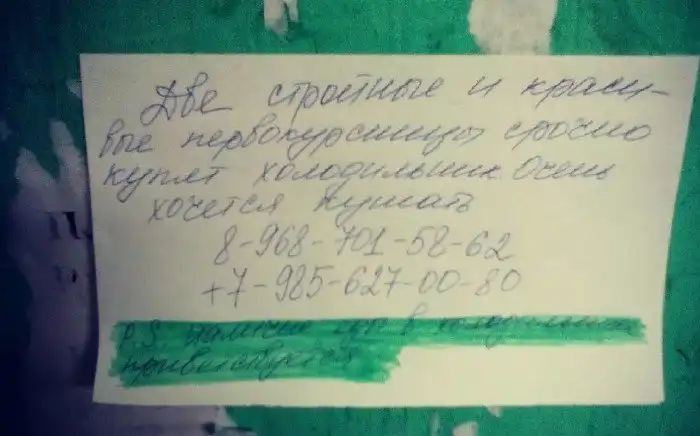 Две стройные и краси-
вые первокурсницы срочно
купят холодильник. Очень
хочется кушать
8-968-701-58-62
+7-985-627-00-80
P.S. Наличие еды в холодильнике
приветствуется